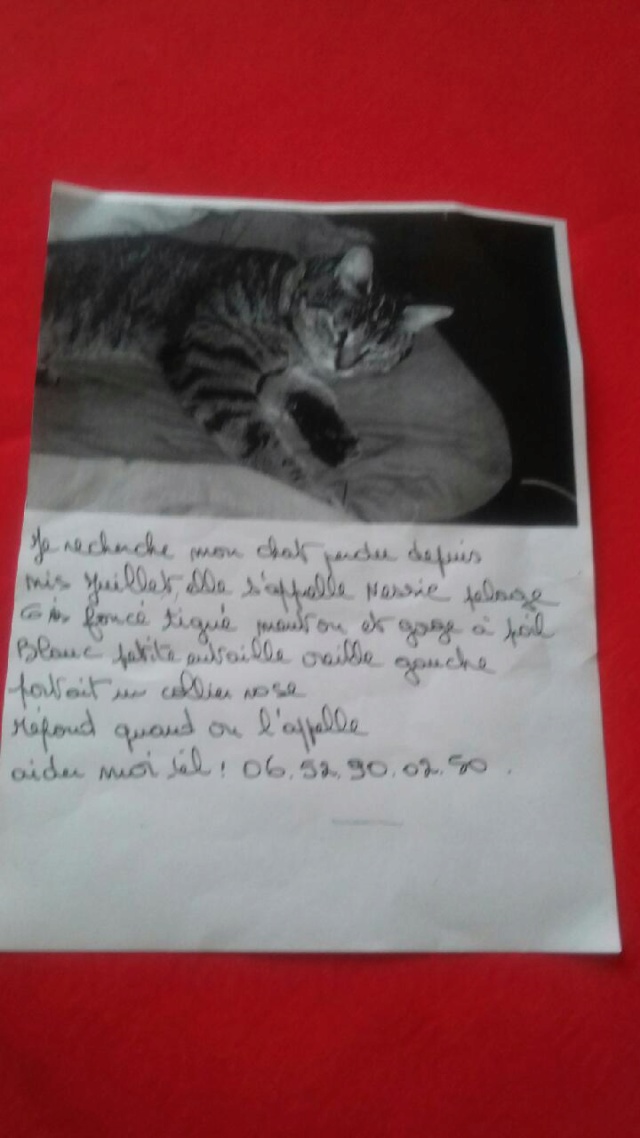 Je recherche mon chat perdu depuis
mis Juillet, elle s'appelle Nessie pelage
Gris foncé tigré menton et gorge à poil
Blanc petite entaille oreille gauche
portait un collier rose
répond quand on l'appelle
aider moi tél : 06.52.90.02.50.